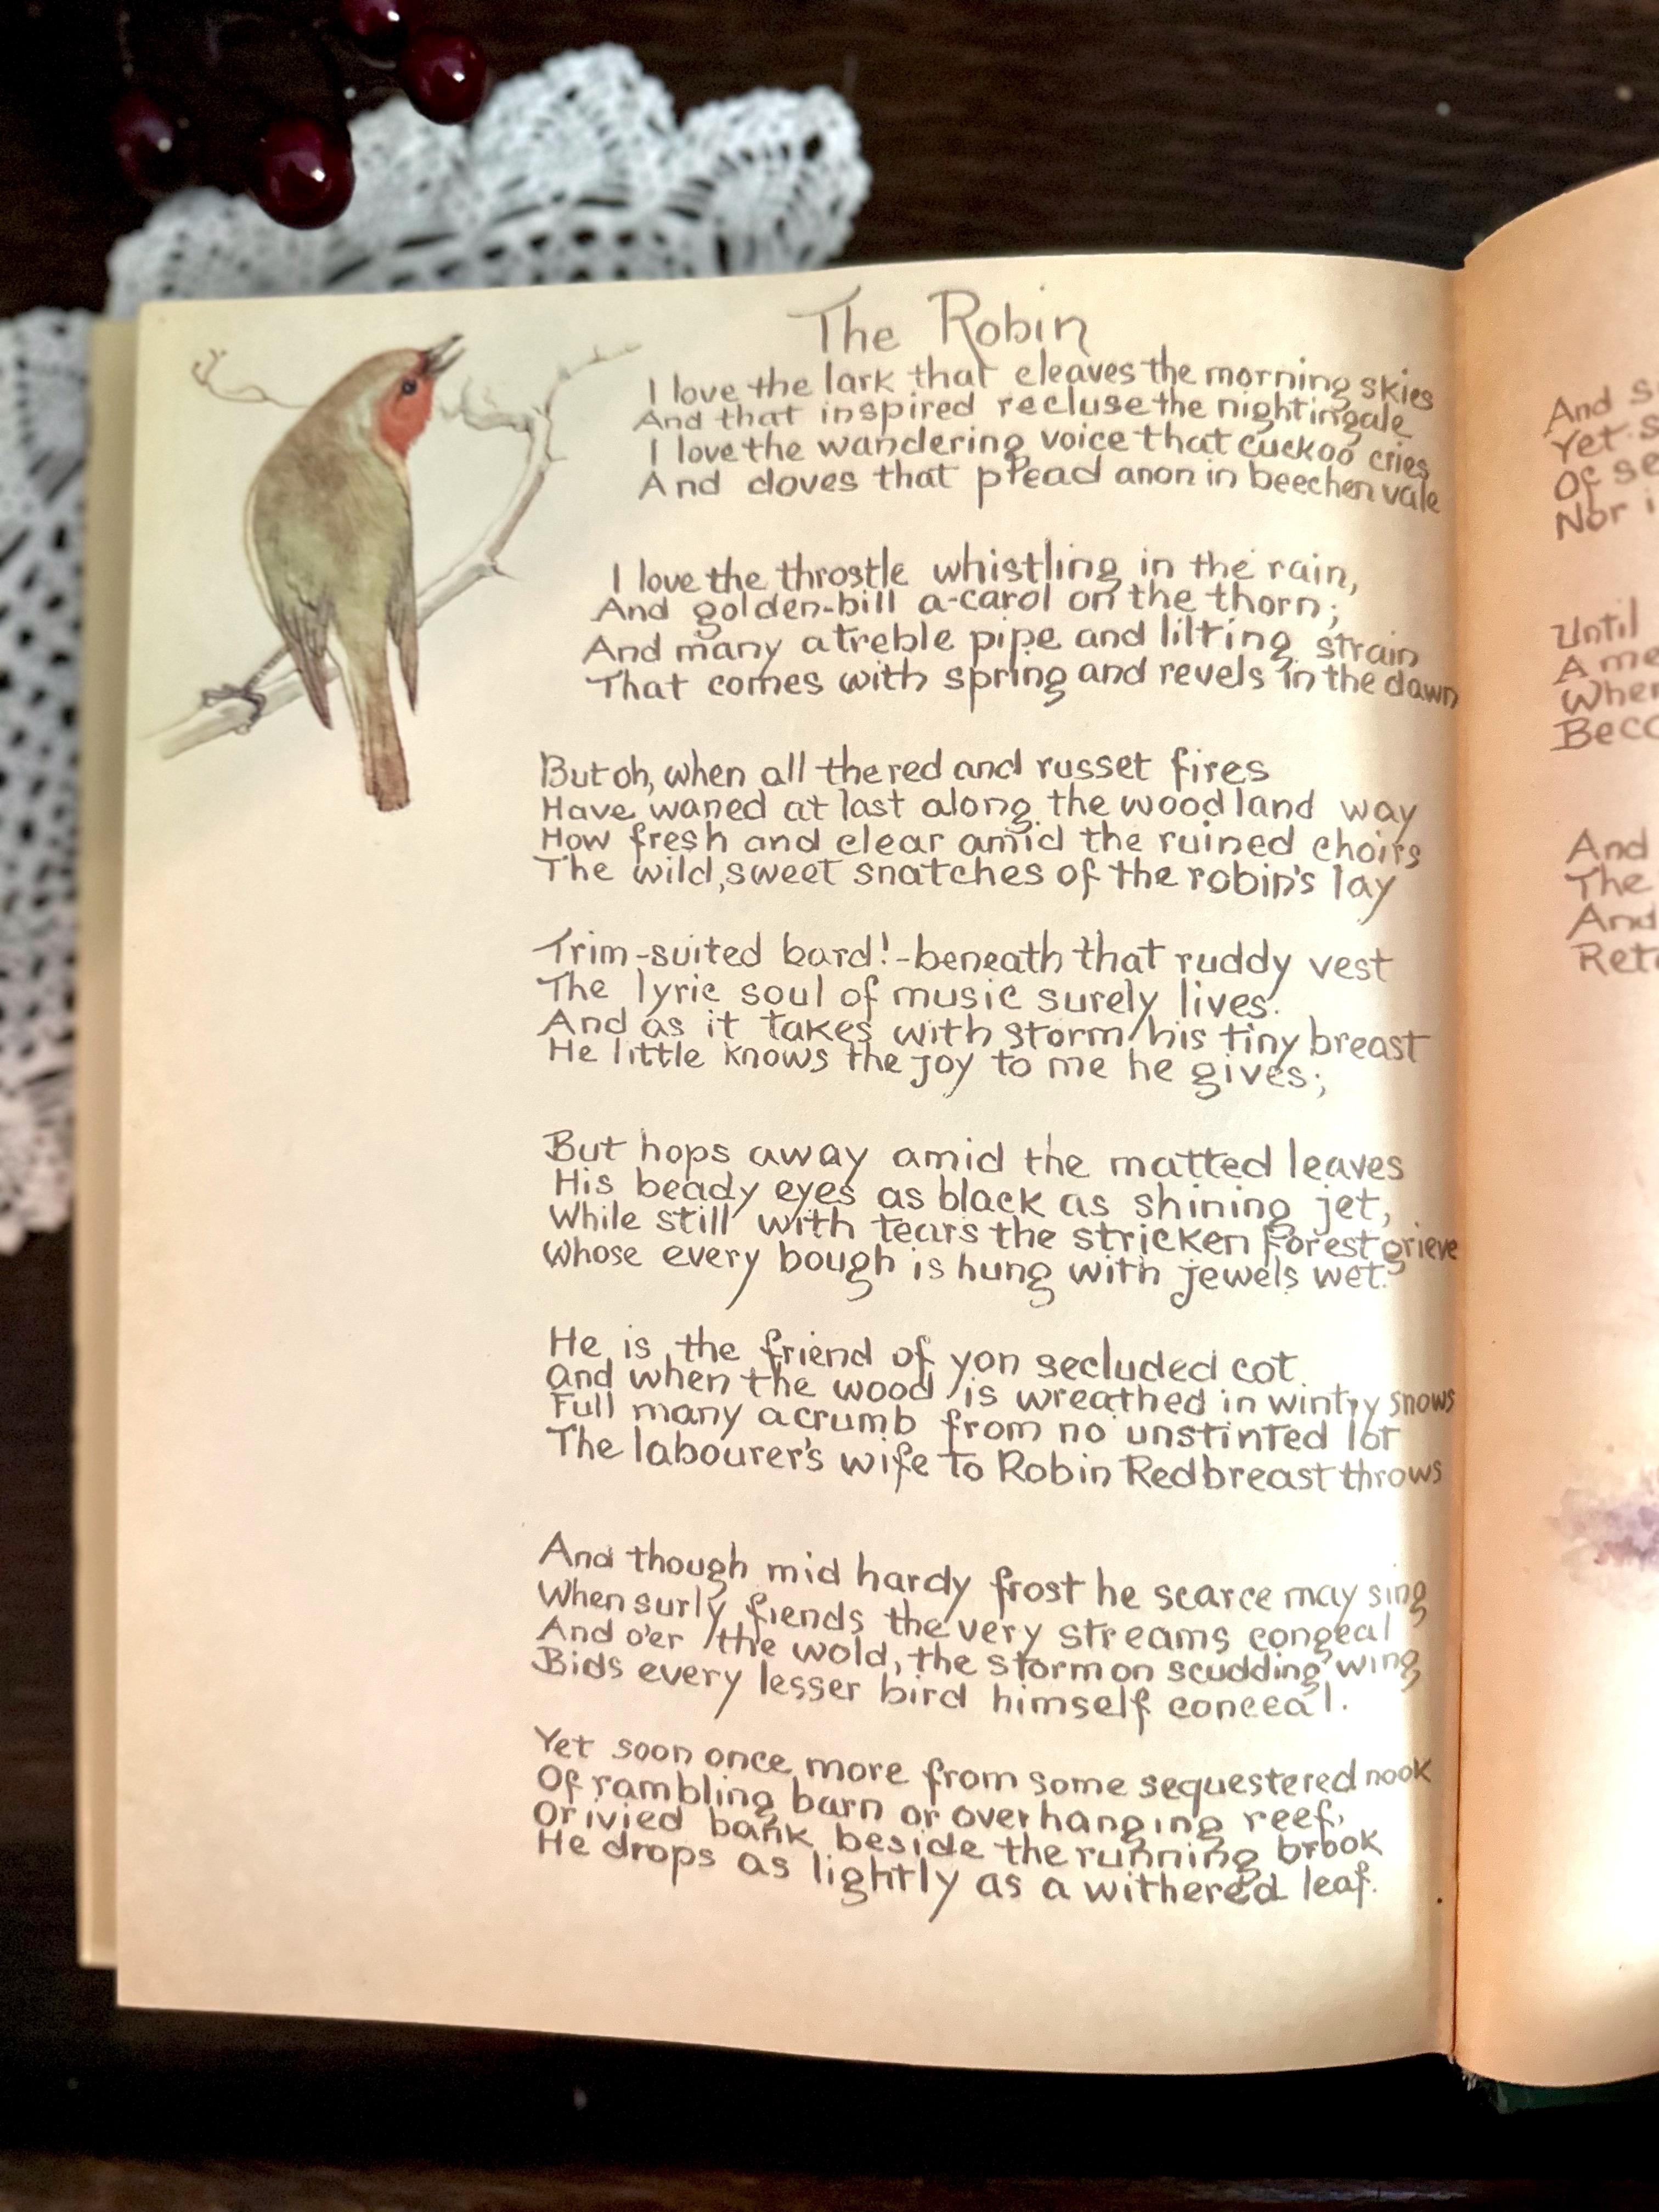 The Robin
I love the lark that cleaves the morning skies
And that inspired recluse the nightingale
I love the wandering voice that cuckoo cries
And doves that plead anon in beechen vale
I love the throstle whistling in the rain,
And golden-bill a-carol on the thorn;
And many a treble pipe and lilting strain
That comes with spring and revels in the dawn
But oh, when all the red and russet fires
Have waned at last along the woodland way
How fresh and clear amid the ruined choirs
The wild, sweet snatches of the robin's lay
Trim-suited bard!-beneath that ruddy vest
The lyric soul of music surely lives.
And as it takes with storm his tiny breast
He little knows the joy to me he gives;
But hops away amid the matted leaves
His beady eyes as black as shining jet,
While still with tears the stricken Forest grieve
Whose every bough is hung with jewels wet.
He is the friend of yon secluded cot.
and when the wood is wreathed in wintry snows
Full many a crumb from no unstinted lot
The labourer's wife to Robin Redbreast throws
And though mid hardy frost he scarce may sing
When surly fiends the very streams congeal
And o'er the wold, the storm on scudding wing
Bids every lesser bird himself conceal.
Yet soon once more from some sequestered nook
Of rambling barn or overhanging reef,
Or ivied bank beside the running brook
He drops as lightly as a withered leaf.
And s
Yet s
Of se
Nor i
Until
A me
When
Beco
And
The
And
Ret